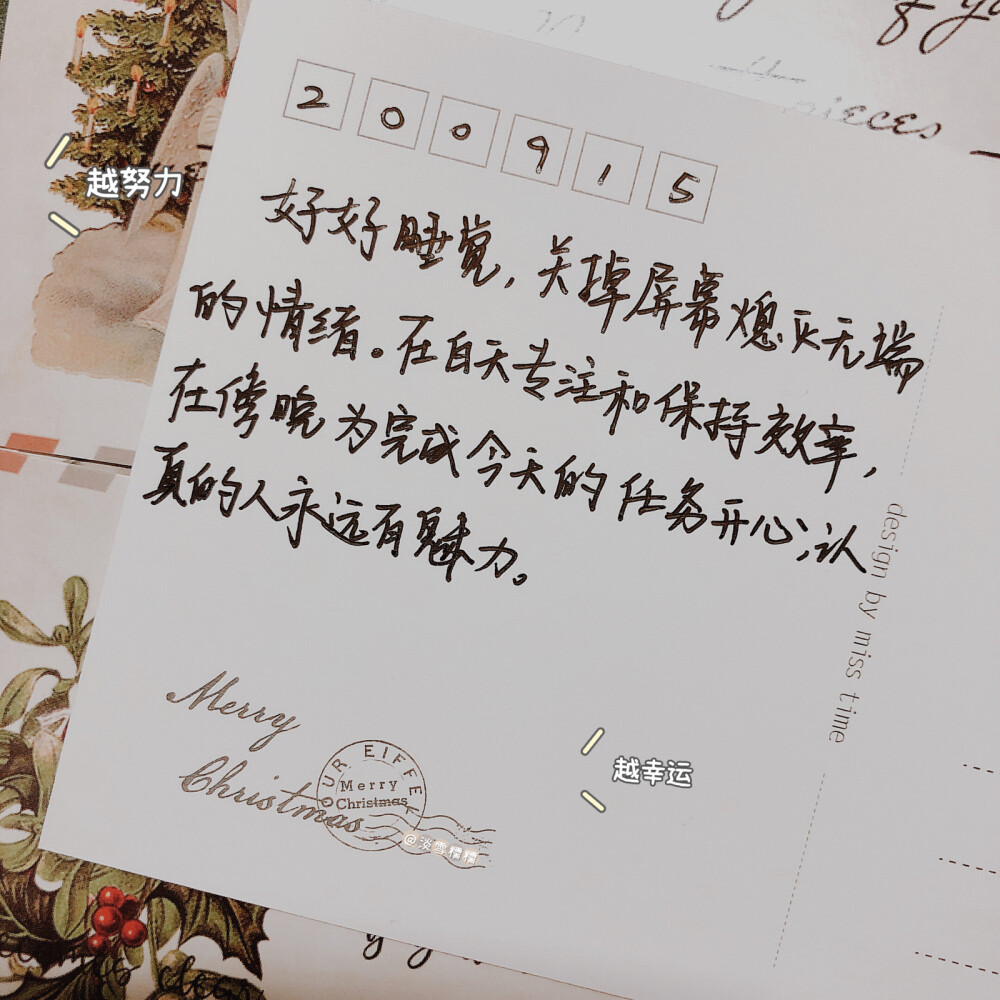 pieces
200915
越努力
好好睡觉，关掉屏幕熄灭无端
的情绪。在白天专注和保持效率，
在傍晚为完成今天的任务开心，认
真的人永远有魅力。
design by miss time
Merry
Christmas
TOUR EIFFEL
Merry
Christmas
越幸运
@淡雪糯糯